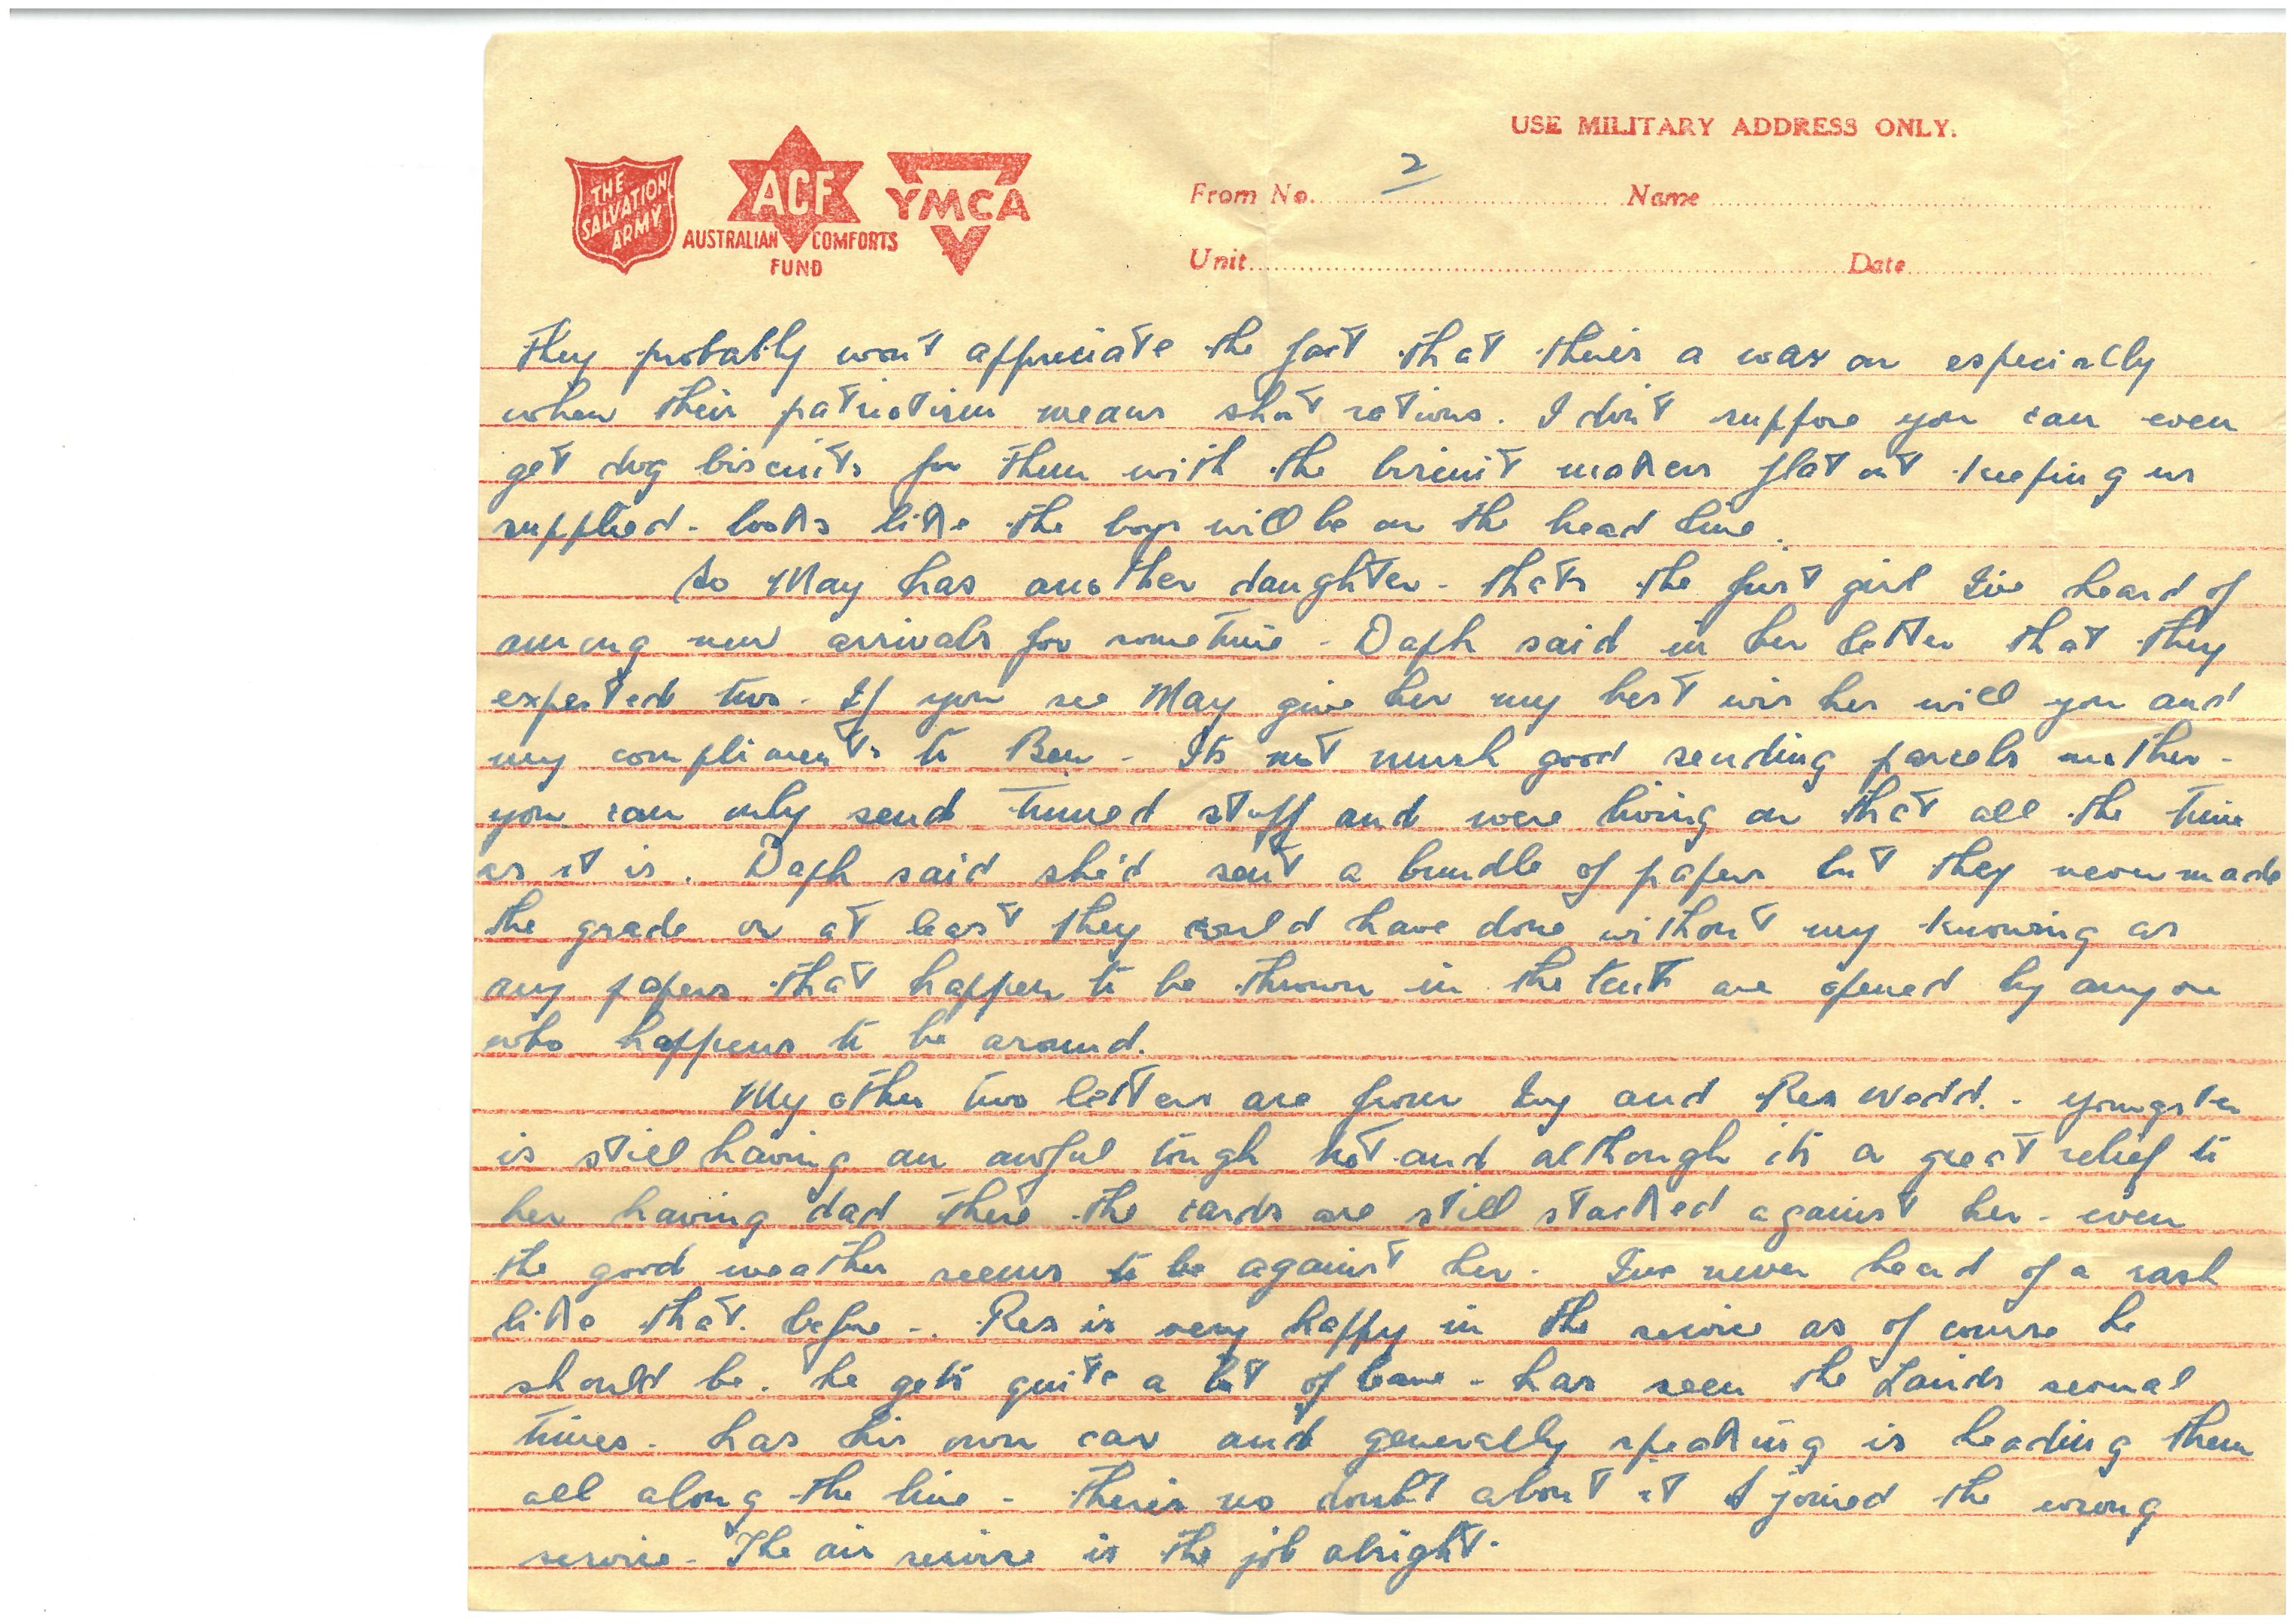 USE MILITARY ADDRESS ONLY.
THE SALVATION ARMY
ACF
AUSTRALIAN COMFORTS FUND
YMCA
From No. 2 Name
Unit Date
They probably won't appreciate the fact that theirs a war on especially
when their patriotism means short rations. I don't suppose you can even
get dog biscuits for them with the biscuit makers flat out keeping us
supplied - looks like the boys will be on the head line.
So May has another daughter - thats the first girl I've heard of
among new arrivals for sometime - Daph said in her letter that they
expected two - If you see May give her my best wishes will you and
my compliments to Ben - Its not much good sending parcels mother -
you can only send tinned stuff and were living on that all the time
as it is. Daph said she'd sent a bundle of papers but they never made
the grade or at least they could have done without my knowing as
any papers that happen to be thrown in the tent are opened by anyone
who happens to be around.
My other two letters are from Ivy and Res Wedd. - youngster
is still having an awful tough trot and although its a great relief to
her having dad there the cards are still stacked against her - even
the good weather seems to be against her - I've never heard of a rash
like that before - Res is very happy in the service as of course he
should be. he gets quite a bit of leave - has seen the Lairds several
times - has his own car and generally speaking is heading them
all along the line - theirs no doubt about it I joined the wrong
service - The air service is the job alright.